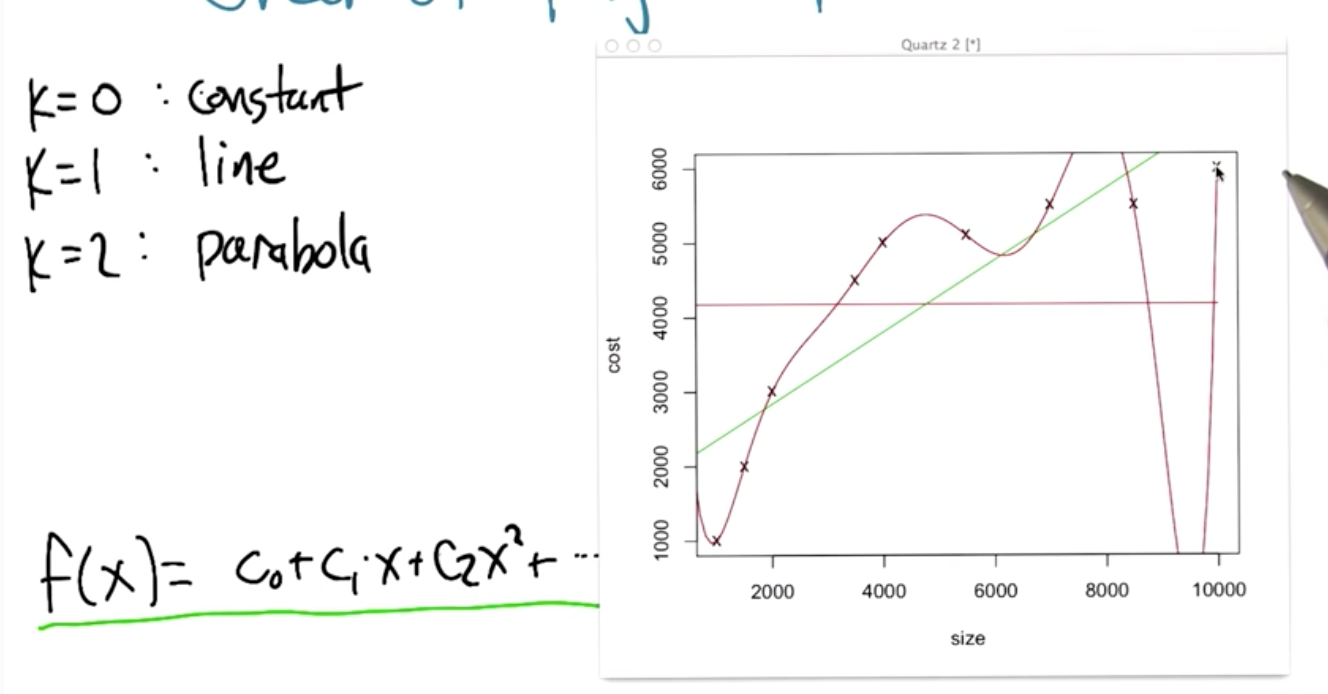 K=0 : constant
K=1 : line
K=2 : parabola
f(x)= c₀+c₁·x+c₂x²+ ...
Quartz 2 [*]
6000
5000
4000
3000
2000
1000
cost
2000 4000 6000 8000 10000
size